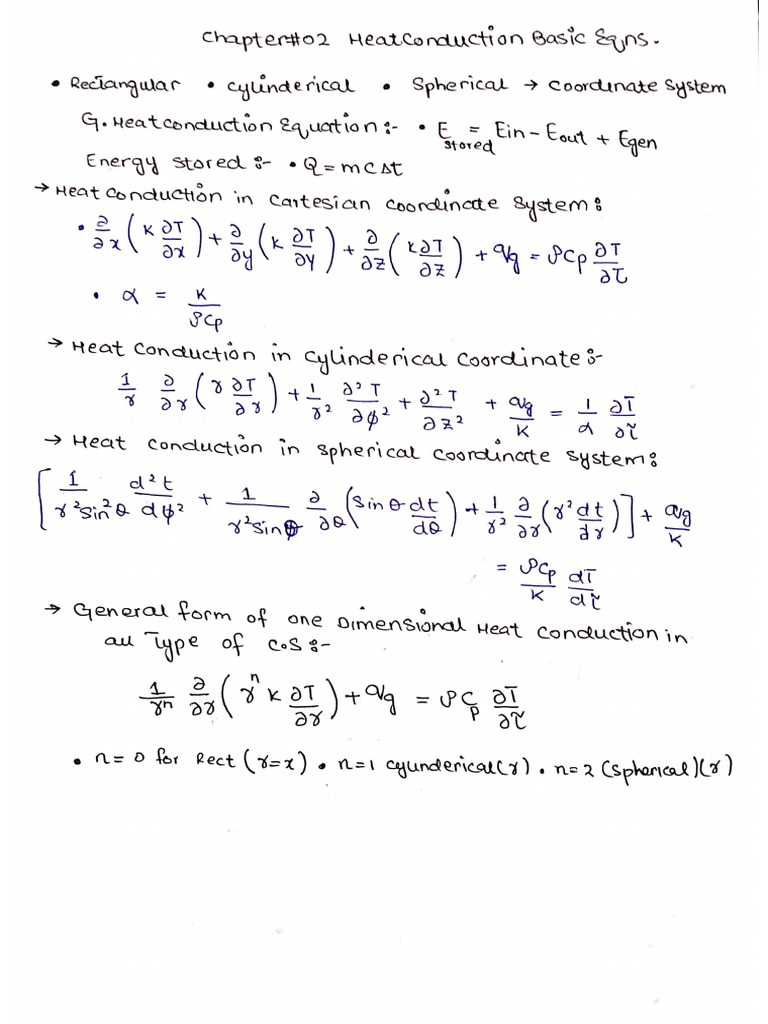 Chapter#02 Heat Conduction Basic Eqns.
• Rectangular • Cylinderical • Spherical → Coordinate System
G. Heat conduction Equation :- • E stored = Ein - Eout + Egen
Energy stored :- • Q = mcΔt
→ Heat conduction in Cartesian coordinate System :
• ∂/∂x (K ∂T/∂x) + ∂/∂y (K ∂T/∂y) + ∂/∂z (K ∂T/∂z) + qg = ρCp ∂T/∂τ
• α = K/ρCp
→ Heat conduction in Cylinderical Coordinate :-
1/r ∂/∂r (r ∂T/∂r) + 1/r² ∂²T/∂φ² + ∂²T/∂z² + qg/K = 1/α ∂T/∂τ
→ Heat conduction in spherical coordinate system :
[1/r²sin²θ d²t/dφ² + 1/r²sinθ ∂/∂θ (sinθ dt/dθ) + 1/r² ∂/∂r (r² dt/dr)] + qg/K
= ρCp/K dT/dτ
→ General form of one Dimensional Heat conduction in
all Type of C.S :-
1/rⁿ ∂/∂r (rⁿ K ∂T/∂r) + qg = ρCp ∂T/∂τ
• n=0 for Rect (r=x) • n=1 cylinderical(r) • n=2 (Spherical)(r)